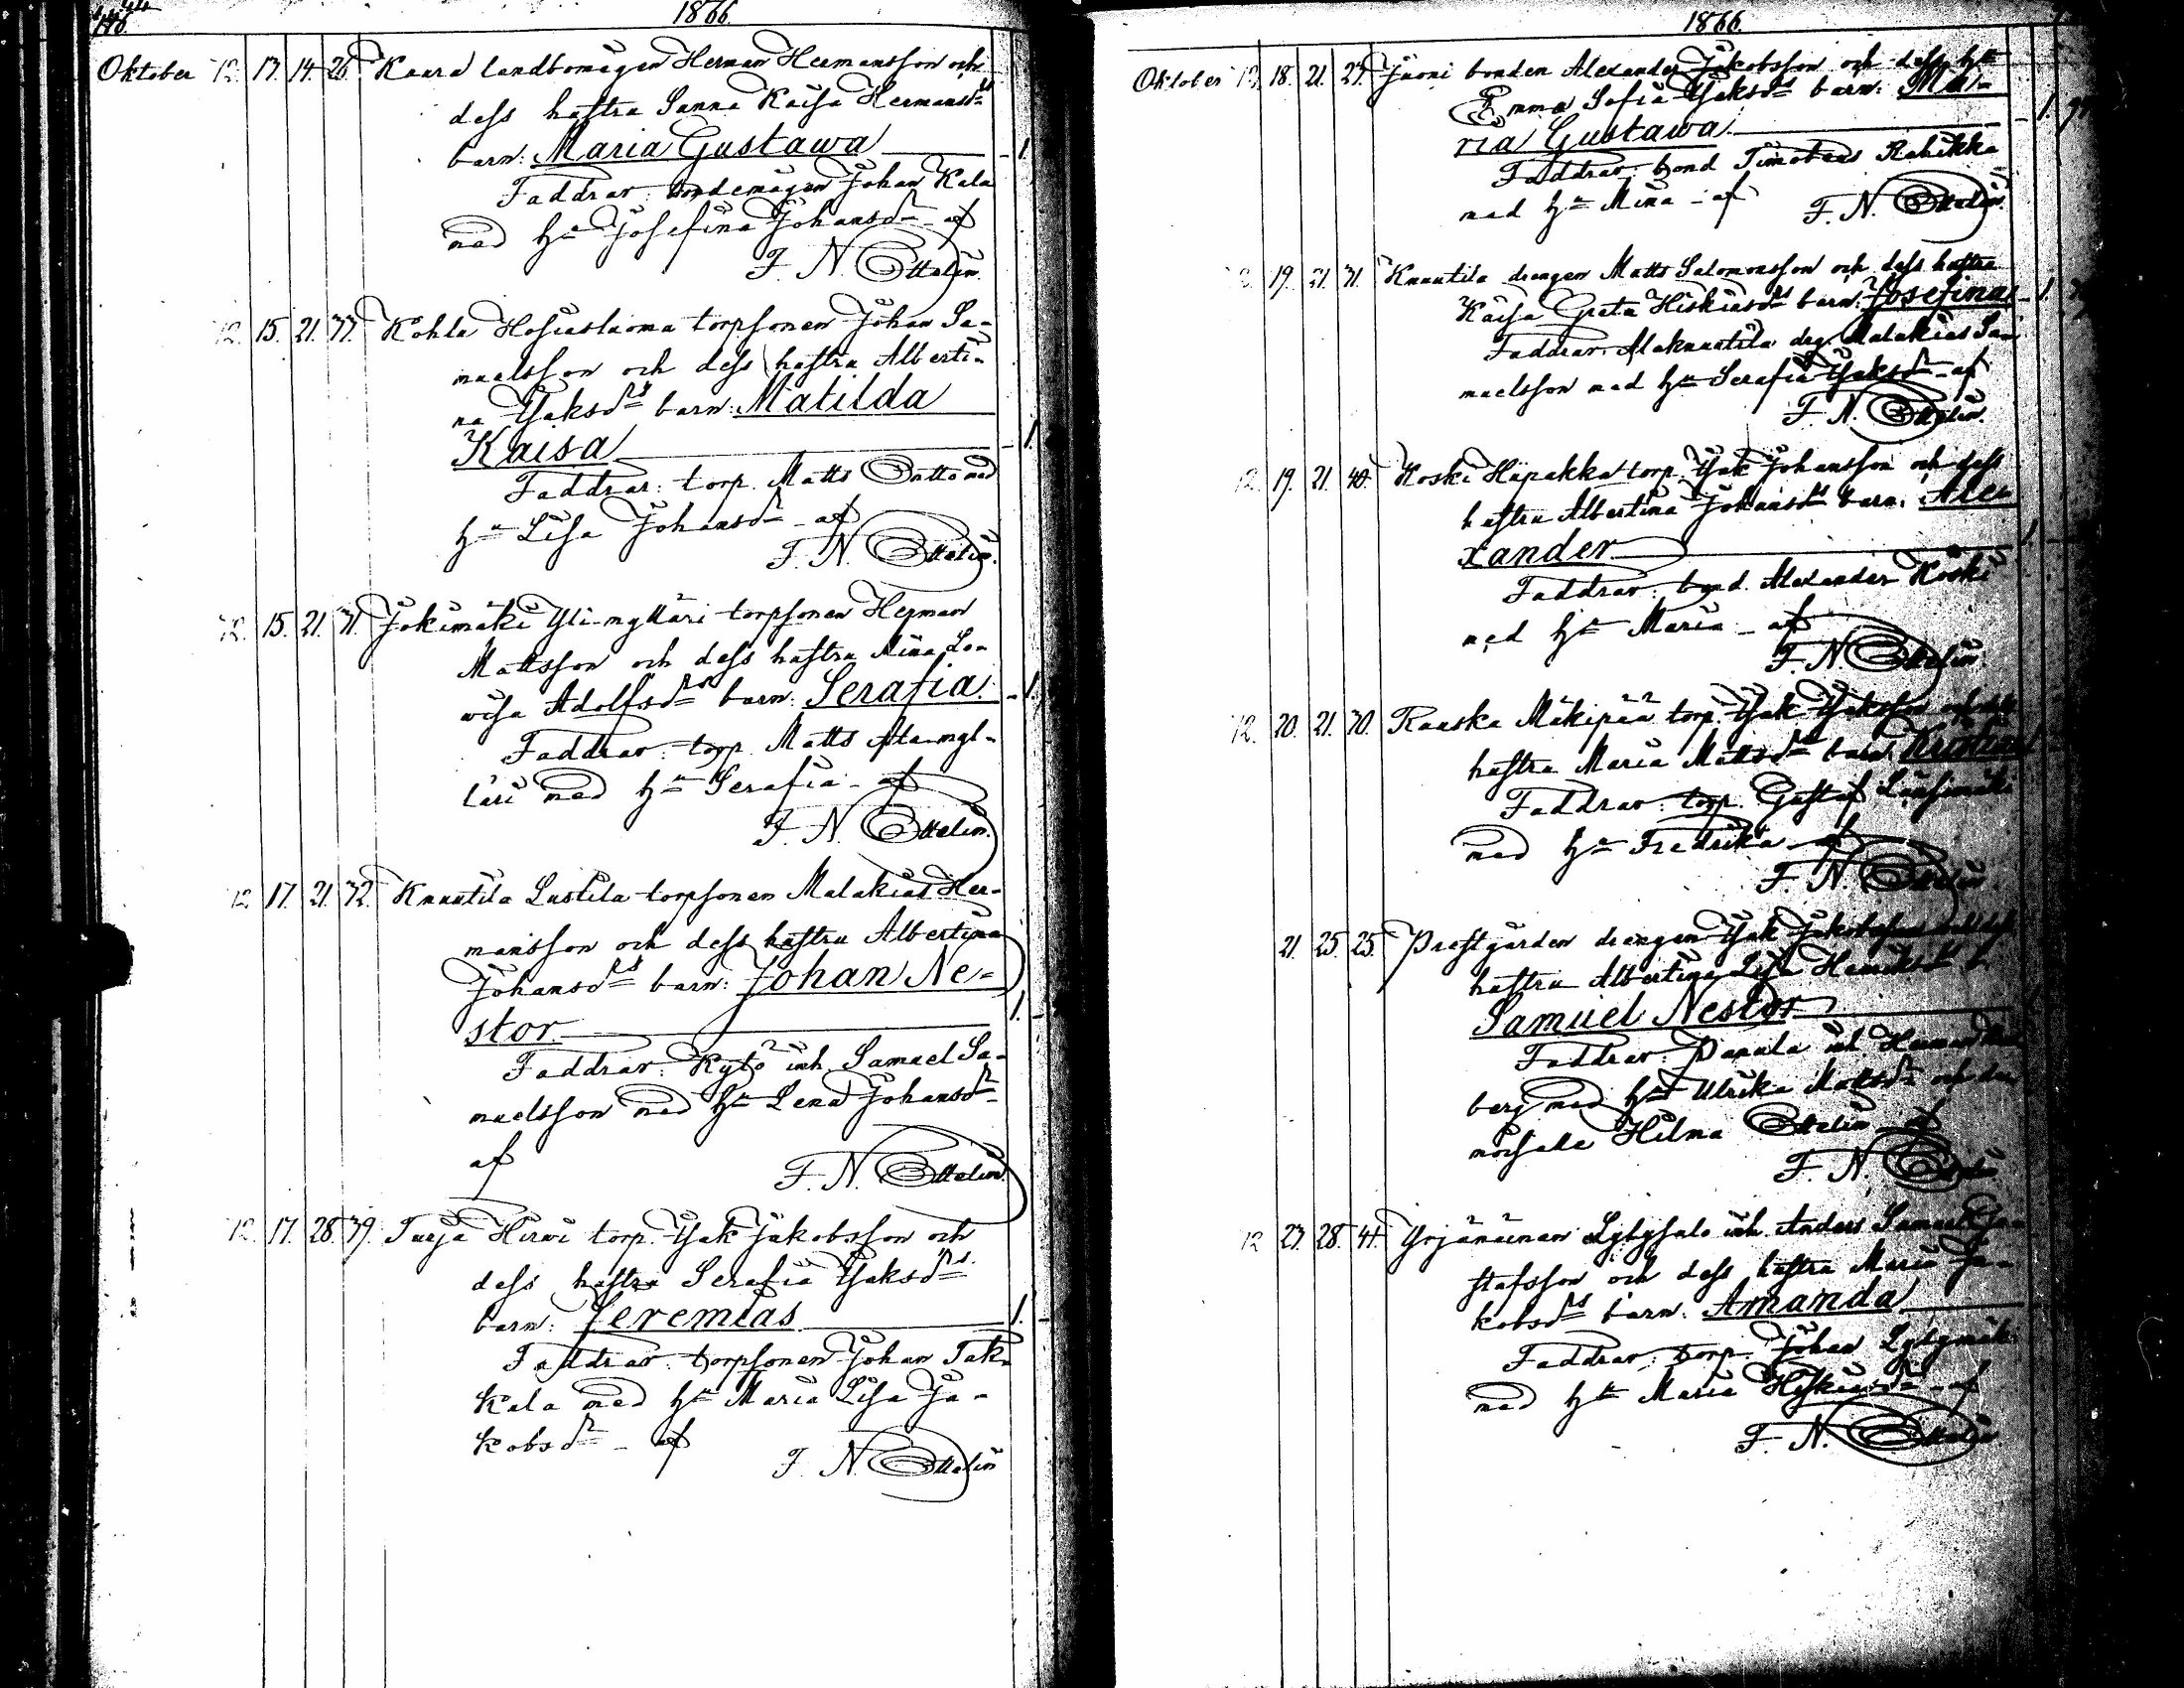 1866.
Oktober 12. 13. 14. 26. Kaura landbomågen Herman Hermansson och
dess hustru Sanna Kaisa Hermansdrs
barn: Maria Gustawa 1.
Faddrar: bondemågen Johan Kala
med hu Josefina Johansdr af
F. N. Ottelin.
12. 15. 21. 37. Kohla Hosiasluoma torpsonen Johan Sa-
muelsson och dess hustru Alberti-
na Isaksdrs barn: Matilda
Kaisa 1.
Faddrar: torp. Matts Ontto med
hu Lisa Johansdr af
F. N. Ottelin.
12. 15. 21. 31. Jokimäki Yli-mylläri torpsonen Herman
Mattsson och dess hustru Mina Lo-
wisa Adolfsdrs barn: Serafia. 1.
Faddrar: torp. Matts Ala-myl-
läri med hu Serafia af
F. N. Ottelin.
12. 17. 21. 32. Knuutila Lustila torpsonen Malakias Her-
mansson och dess hustru Albertina
Johansdrs barn: Johan Ne-
stor 1.
Faddrar: Kytö inh. Samuel Sa-
muelsson med hu Lena Johansdr
af F. N. Ottelin.
12. 17. 28. 39. Turja Hirwi torp. Isak Jakobsson och
dess hustru Serafia Isaksdrs
barn: Jeremias 1.
Faddrar: torpsonen Johan Tak-
kala med hu Maria Lisa Ja-
kobsdr af F. N. Ottelin
1866.
Oktober 12. 18. 21. 27. Juoni bonden Alexander Jakobsson och dess hu
Emma Sofia Isaksdrs barn: Ma-
ria Gustawa 1.
Faddrar: bond. Timoteus Rahikka
med hu Mina af F. N. Ottelin.
19. 21. 31. Knuutila drengen Matts Salomonsson och dess hustru
Kaisa Greta Hiskiasdrs barn: Josefina 1.
Faddrar: Alaknuutila drg. Malakias Sa-
muelsson med hu Serafia Isaksdr af
F. N. Ottelin.
12. 19. 21. 40. Koski Hapakka torp. Isak Johansson och dess
hustru Albertina Johansdrs barn: Ale-
xander 1.
Faddrar: bond. Alexander Koski
med hu Maria af
F. N. Ottelin
12. 20. 21. 30. Rauska Mäkipää torp. Isak Isaksson och dess
hustru Maria Mattsdrs barn
Faddrar: torp. Gustaf Länsimäki
med hu Fredrika af
F. N. Ottelin
21. 25. 25. Prestgården drengen Isak Jakobsson och dess
hustru Albertina Lisa Henriksdrs b.
Samuel Nestor
Faddrar: Panula inh. Herman
berg med hu Ulrika Mattsdr och
Hilma Ottelin af
F. N. Ottelin
12 27. 28. 41. Yrjänäinen Lylysalo inh. Anders Samuel Gu-
stafsson och dess hustru Maria Ja-
kobsdrs barn: Amanda
Faddrar: torp. Johan Lylymäki
med hu Maria Hiskiasdr af
F. N. Ottelin